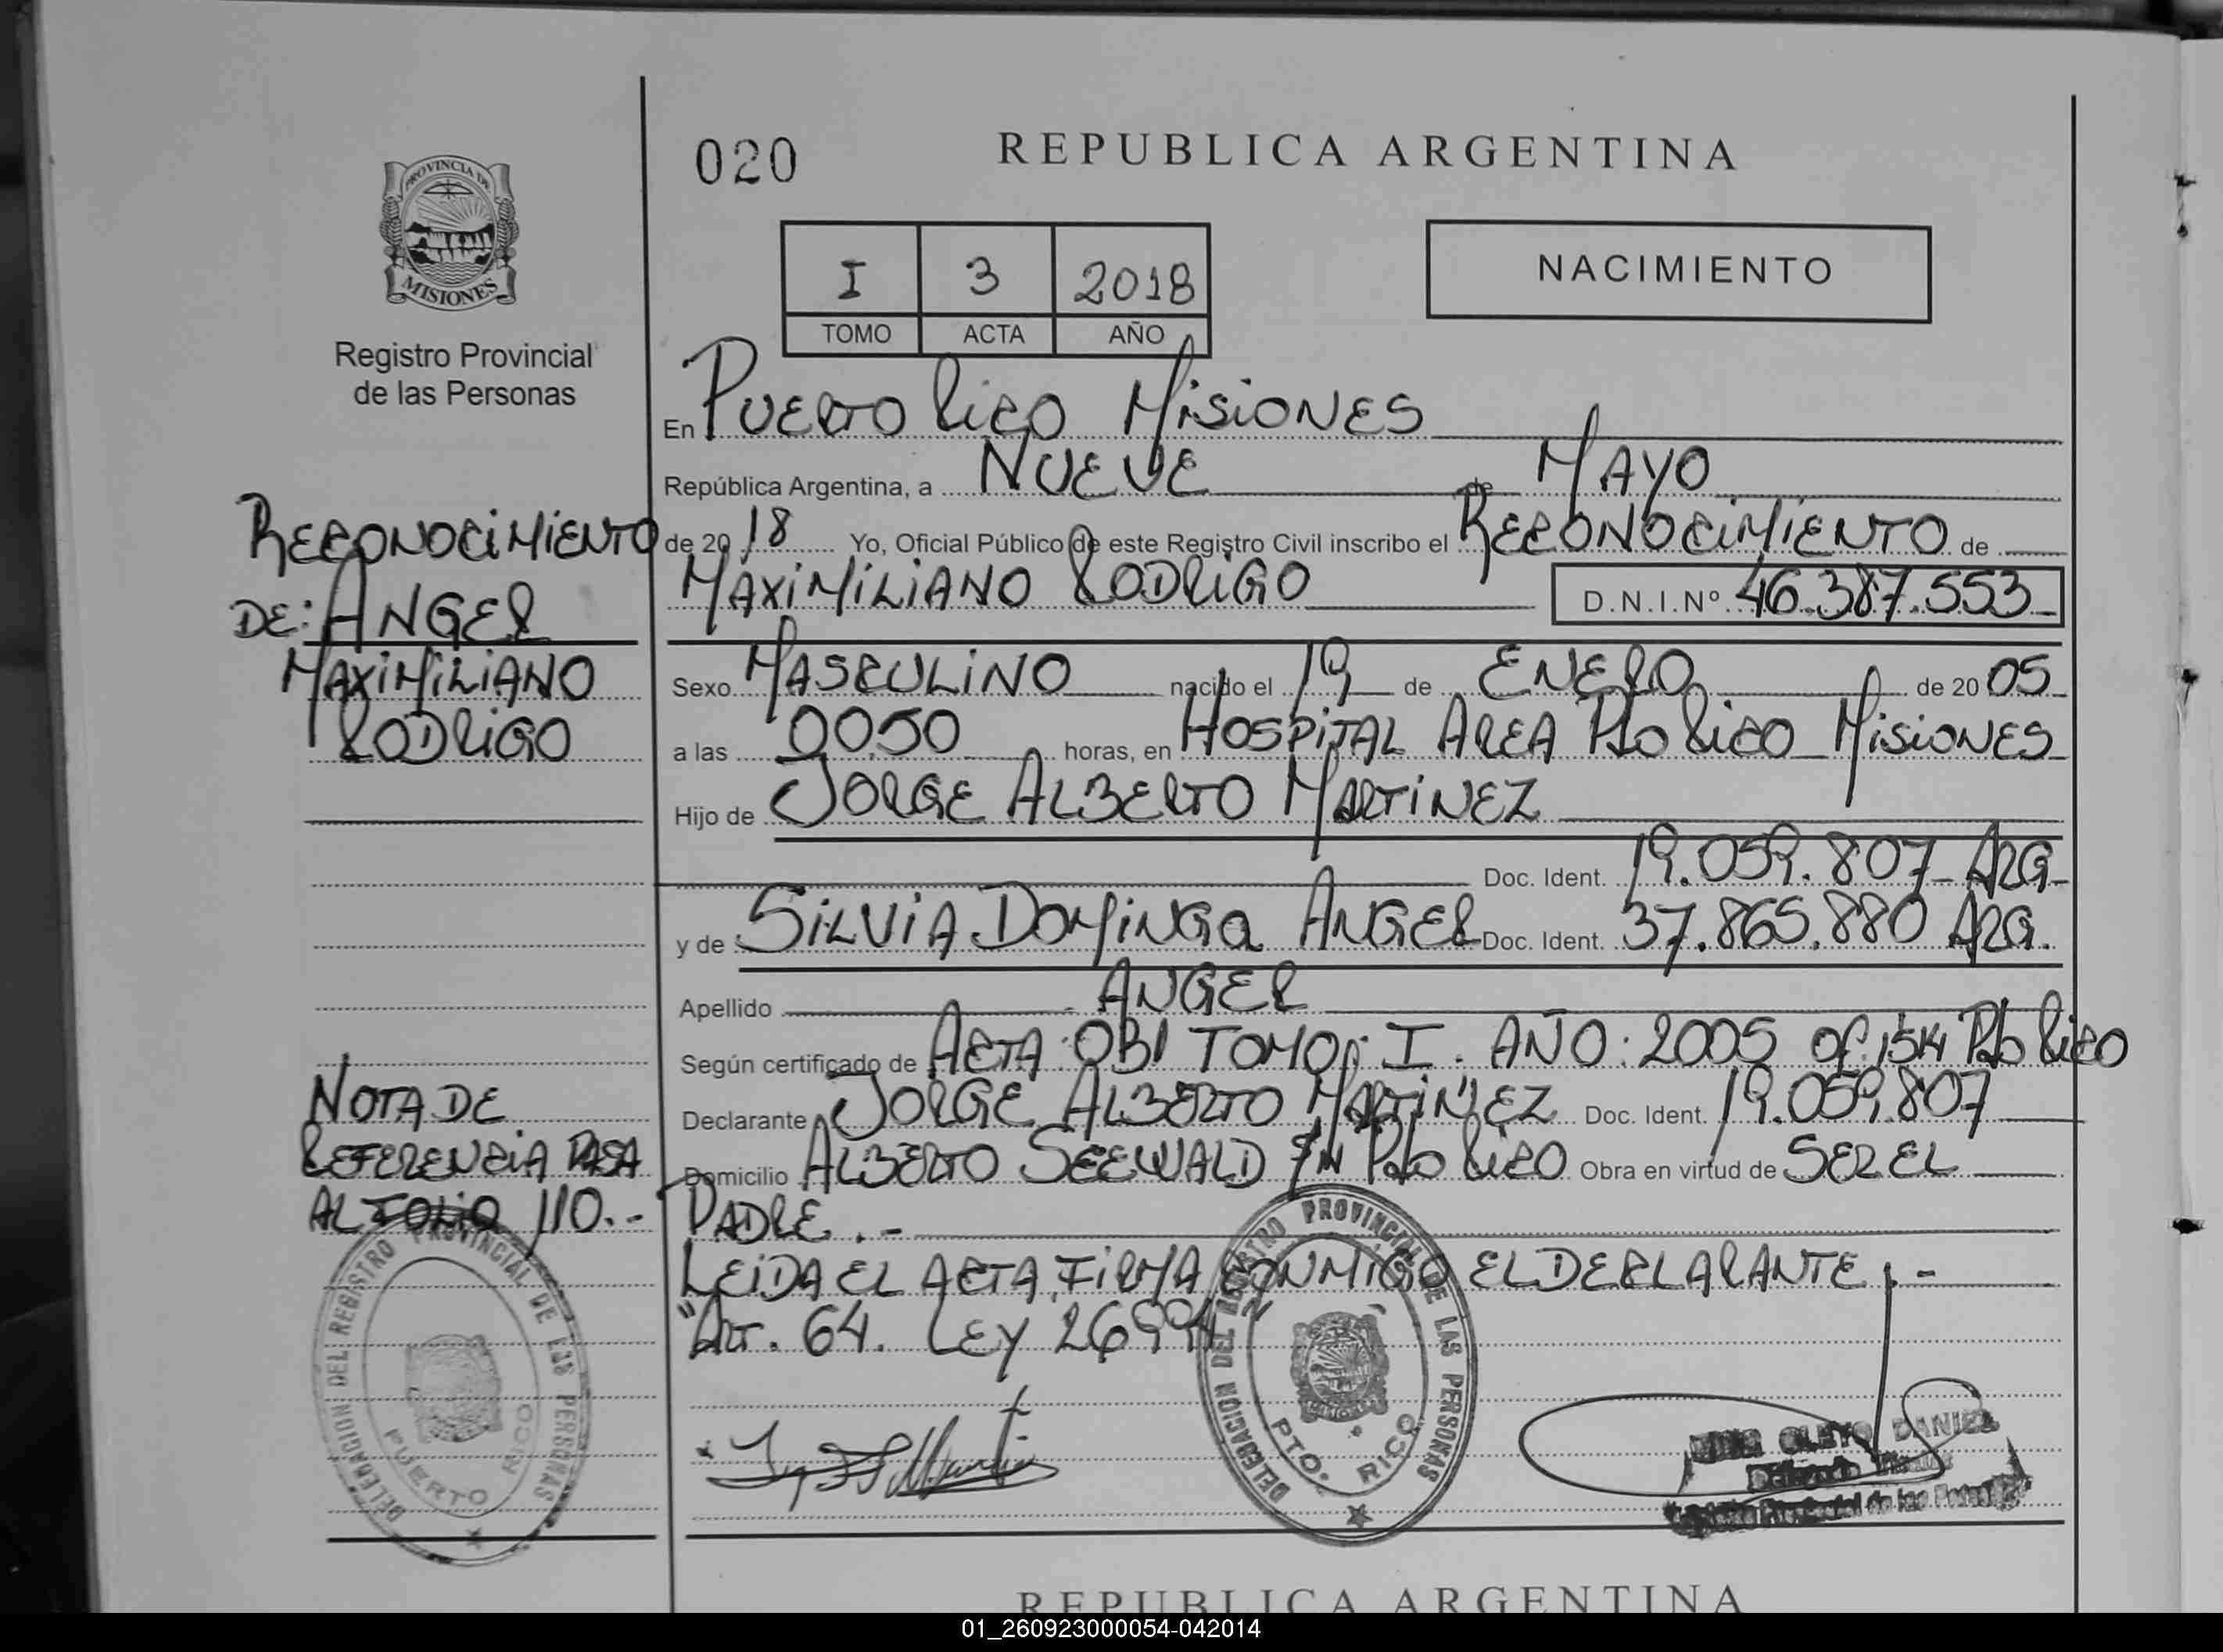 020
REPUBLICA ARGENTINA
PROVINCIA DE
MISIONES
Registro Provincial
de las Personas
I 3 2018
TOMO ACTA AÑO
NACIMIENTO
En Puerto Rico Misiones
República Argentina, a NUEVE de MAYO
de 20 18 Yo, Oficial Público de este Registro Civil inscribo el RECONOCIMIENTO de
MAXIMILIANO RODRIGO D.N.I.Nº 46.387.553
Sexo MASCULINO nacido el 19 de ENERO de 20 05
a las 00,50 horas, en HOSPITAL AREA Pto Rico MISIONES
Hijo de JORGE ALBERTO MARTINEZ
Doc. Ident. 19.059.807 ARG
y de SILVIA DOMINGA ANGER Doc. Ident. 37.865.880 ARG.
Apellido ANGER
Según certificado de ACTA: 081 TOMO: I. AÑO: 2005 Of. Pto Rico
Declarante JORGE ALBERTO MARTINEZ Doc. Ident. 19.059.807
Domicilio ALBERTO SEEWALD S/N Pto Rico Obra en virtud de SER EL
PADRE.-
LEIDA EL ACTA, FIRMA CONMIGO EL DECLARANTE.-
"Art. 64. LEY 26994"
RECONOCIMIENTO
DE: ANGER
MAXIMILIANO
RODRIGO
NOTA DE
REFERENCIA PASA
AL FOLIO 110.-
DELEGACION DEL REGISTRO PROVINCIAL DE LAS PERSONAS
PUERTO RICO
DELEGACION DEL REGISTRO PROVINCIAL DE LAS PERSONAS
PTO. RICO
DANIEL
REPUBLICA ARGENTINA
01_260923000054-042014